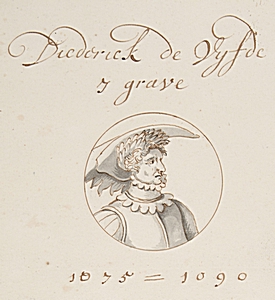 Diederick de Vyfde
7 grave
1075 = 1090